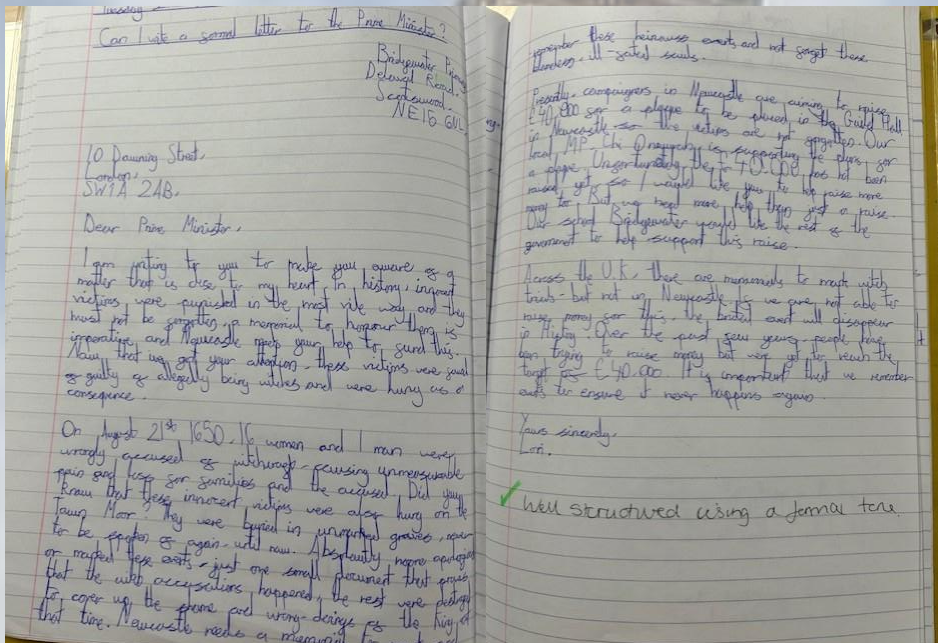 Tuesday
Can I write a formal letter to the Prime Minister?
Bridgewater Primary
Delaval Road,
Scotswood,
NE15 6NL
10 Downing Street,
London,
SW1A 2AB,
Dear Prime Minister,
I am writing to you to make you aware of a
matter that is close to my heart. In history, innocent
victims were punished in the most vile way and they
must not be forgotten, a memorial to honour them is
imperative and Newcastle needs your help to fund this.
Now that we got your attention, these victims were found
of guilty of allegedly being witches and were hung as a
consequence.
On August 21st 1650, 16 women and 1 man were
wrongly accused of witchcraft - causing unmeasurable
pain and loss for families and the accused. Did you
know that these innocent victims were hung on the
Town Moor? They were buried in unmarked graves, never
to be spoken of again - until now. Absolutely noone apologised
or marked these events - just one small document that proves
that the accusations happened, the rest were destroyed
to cover up the shame and wrong-doings of the King of
that time. Newcastle needs a memorial to
remember these heinouss events and not forget these
blameless, ill-fated souls.
Presently, campaigners in Newcastle are aiming to raise
£40,000 for a plaque to be placed in the Guild Hall
in Newcastle so the victims are not forgotten. Our
local MP, Chi Onwurah is supporting the plans for
a plaque. Unfortunately the £40,000 has not been
raised yet so I would like you to help raise more
money to But we need more help than just a raise.
Our school Bridgewater would like the rest of the
government to help support this raise.
Across the U.K, there are mumorials to mark witch
trials - but not in Newcastle. If we are not able to
raise money for this, the brutal event will disappear
in History. Over the past few years people have
been trying to raise money but were yet to reach the
target of £40,000. It is important that we remember
events to ensure it never happens again.
Yours sincerely,
Lori.
Well structured using a formal tone